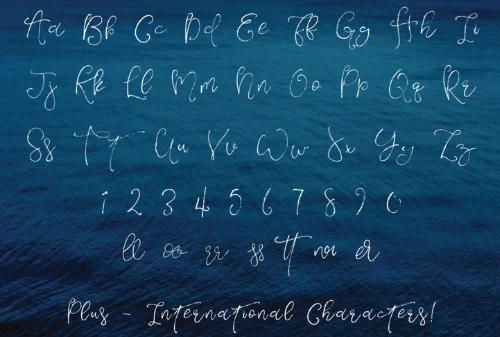 Aa Bb Cc Dd Ee Ff Gg Hh Ii
Jj Kk Ll Mm Nn Oo Pp Qq Rr
Ss Tt Uu Vv Ww Xx Yy Zz
1 2 3 4 5 6 7 8 9 0
ll oo rr ss tt nn er
Plus - International Characters!